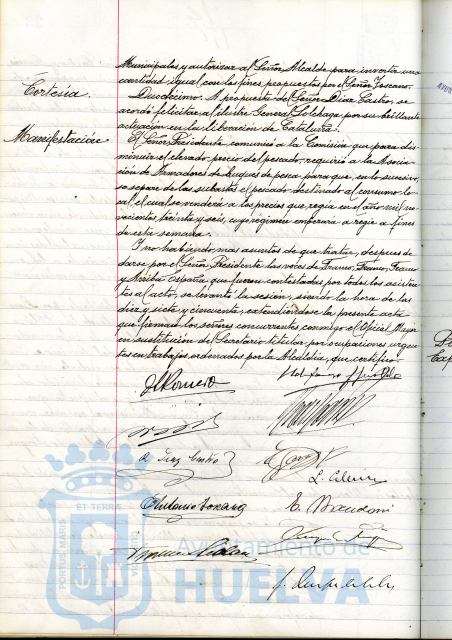 Municipales y autorizar al Señor Alcalde para invertir una
cantidad igual con los fines propuestos por el Señor Toscano.
Cortesía.
Duodécimo. A propuesta del Señor Díaz Castro, se
acordó felicitar al ilustre General Solchaga por su brillante
actuación en la liberación de Cataluña.
Manifestación
El Señor Presidente comunicó a la Comisión que para dis-
minuir el elevado precio del pescado, requirió a la Asocia-
ción de Armadores de Buques de pesca para que, en lo sucesivo,
se separe de las subastas el pescado destinado al consumo lo-
cal, el cual se venderá a los precios que regía en el año mil no-
vecientos treinta y seis, cuyo régimen empezará a regir a fines
de esta semana.
Y no habiendo mas asuntos de que tratar, despues de
darse por el Señor Presidente las voces de Franco, Franco, Franco
y Arriba España que fueron contestadas por todos los asisten-
tes al acto, se levantó la sesión, siendo la hora de las
diez y siete y cincuenta, extendiéndose la presente acta
que firman los señores concurrentes conmigo el Oficial Mayor
en sustitución del Secretario titular por ocupaciones urgen-
tes en trabajos ordenados por la Alcaldía, que certifico.
Romero
Antonio Lozano
ET TERRAE
PORTUS MARIS
Ayuntamiento de
HUELVA